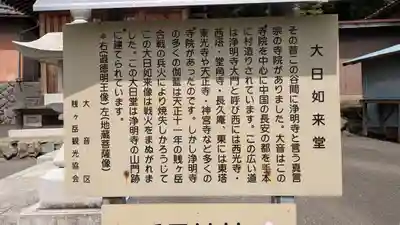 大日如来堂
その昔この谷間に浄明寺と言う真言
宗の寺院がありました。大音はこの
寺院を中心に中国の長安の都を手本
に村造りされています。この広い道
は浄明寺大門と呼び西には西光寺・
西塔・堂角寺・長久庵、東には東塔
東光寺や天正寺・神宮寺など多くの
寺院があったのです。しかし浄明寺
の多くの伽藍は天正十一年の賤ヶ岳
合戦の兵火により焼失しかろうじて
この大日如来像は戦火をまぬがれま
した。この大日堂は浄明寺の山門跡
に建てられています。
（右・盗徳明王像）（左・地蔵菩薩像）
大音区
賤ヶ岳観光協会